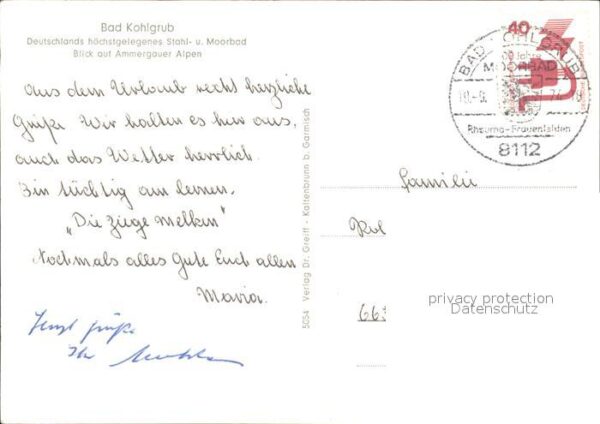 Bad Kohlgrub
Deutschlands höchstgelegenes Stahl- u. Moorbad
Blick auf Ammergauer Alpen
Aus dem Urlaub recht herzliche
Grüße. Wir halten es hier aus,
auch das Wetter herrlich.
Bin tüchtig am lernen.
„Die Ziege melken"
Nochmals alles Gute Euch allen
Maria.
Grüße
Ihr
5054 Verlag Dr. Greiff - Kaltenbrunn b. Garmisch
40
BAD KOHLGRUB
Jahre
MOORBAD
Rheuma-Frauenleiden
8112
Familie
663
privacy protection
Datenschutz